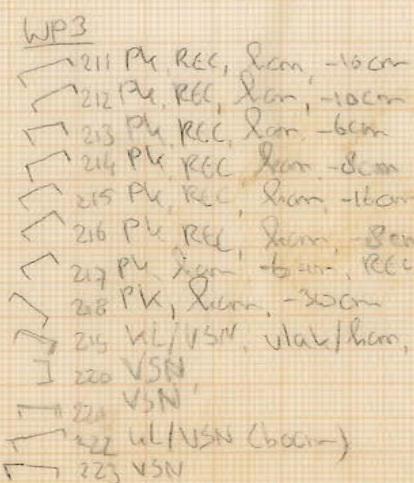 WP3
211 Pk, REC, kom, -10cm
212 Pk, REC, kom, -10cm
213 Pk, REC, kom, -6cm
214 Pk, REC, kom, -8cm
215 Pk, REC, kom, -16cm
216 Pk, REC, kom, -8cm
217 Pk, kom, REC
218 PK, kom, -30cm
219 KL/VSN, vlak/kom,
220 VSN
221 VSN
222 KL/VSN
223 VSN